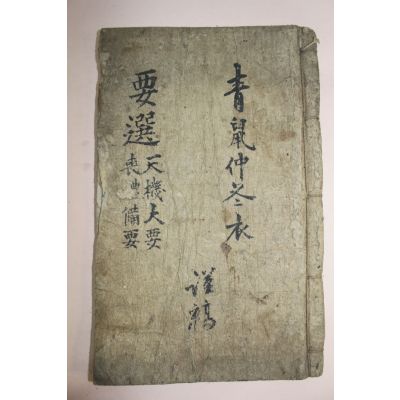 青鼠仲冬衣
謹稿
要選
天機大要
喪禮備要